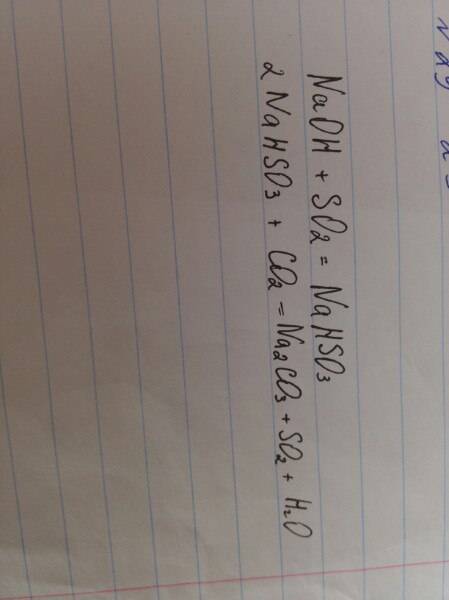 NaOH + SO2 = NaHSO3
2 NaHSO3 + CO2 = Na2CO3 + SO2 + H2O